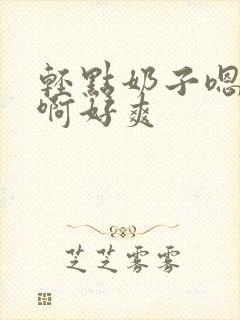 輕點奶子嗯
啊好爽
芝芝雾雾